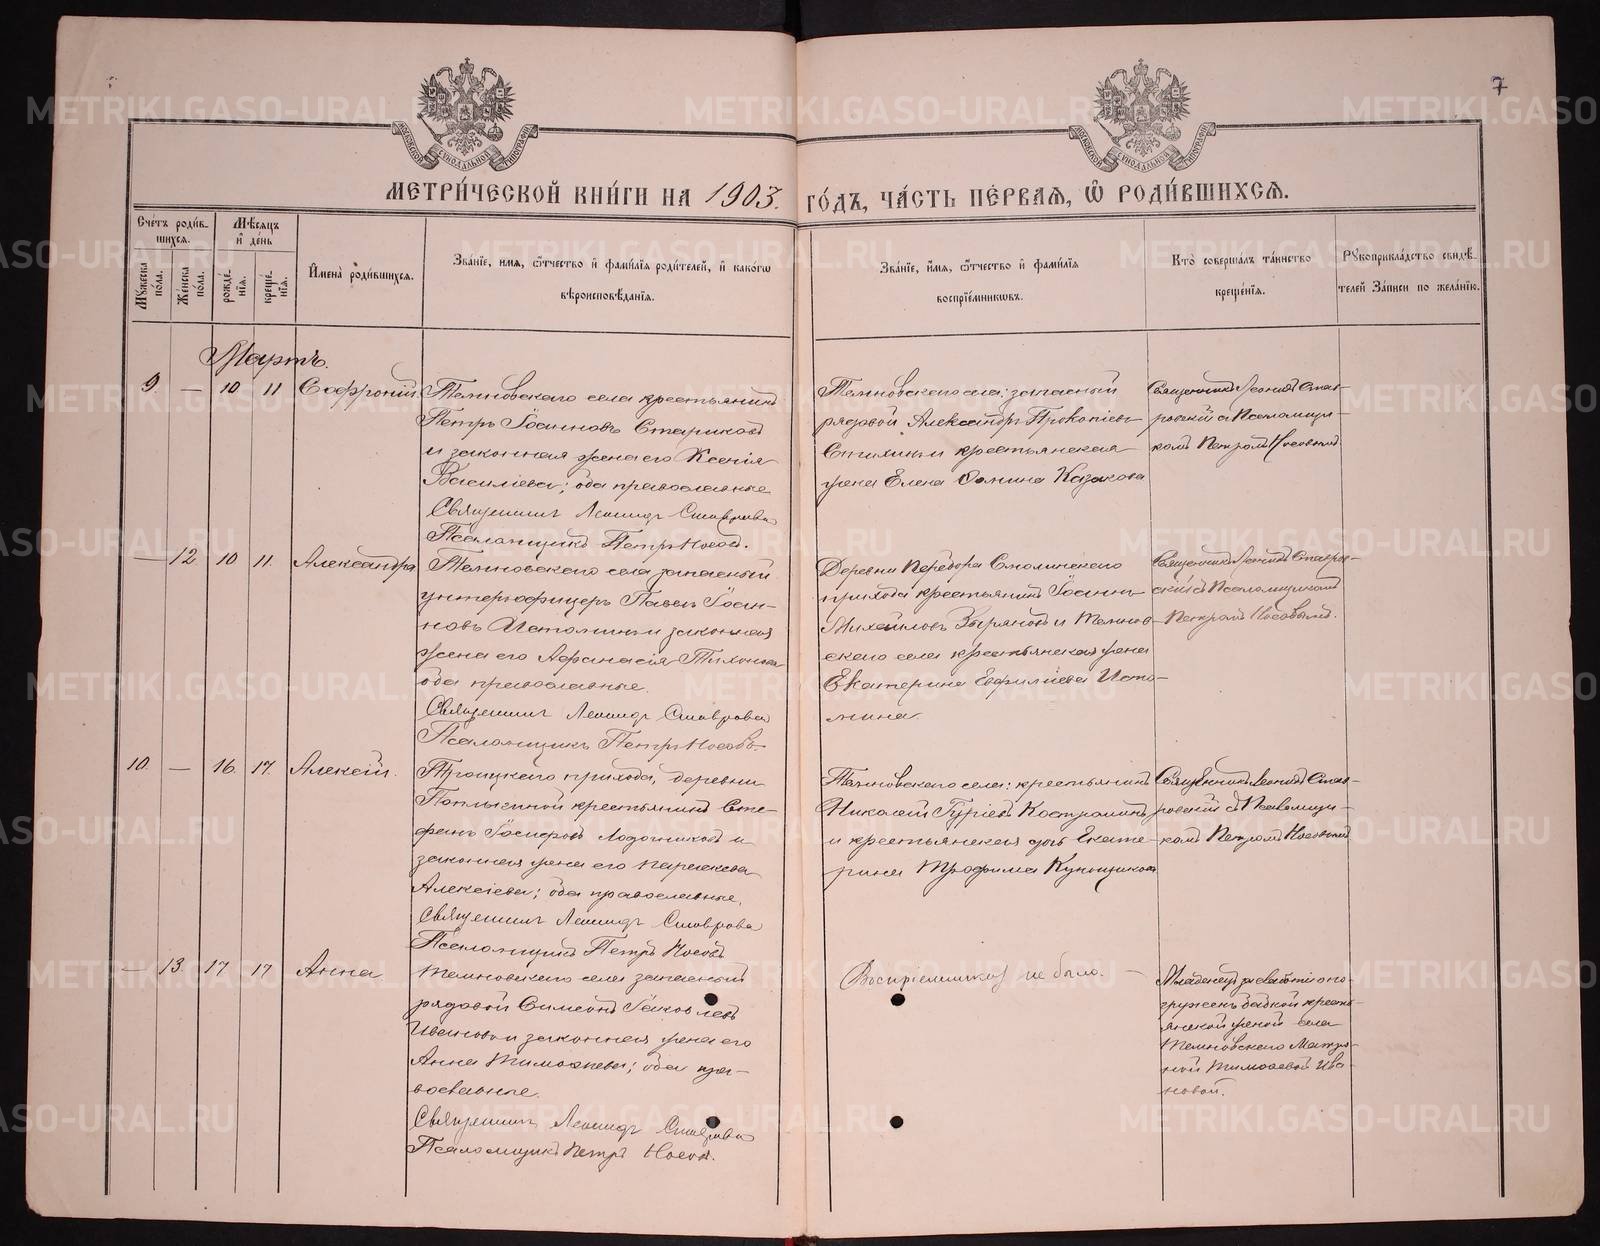 7
МЕТРИ́ЧЕСКОЙ КНИ́ГИ НА 1903. ГО́ДЪ, ЧА́СТЬ ПЕ́РВАЯ, Ѽ РОДИ́ВШИХСЯ.
Сче́тъ роди́в-
шихся.
Мѣсяцъ
и҆ де́нь
Мꙋ́жеска
по́ла.
Же́нска
по́ла.
рожде́-
нїя.
креще́-
нїя.
И҆мена̀ роди́вшихся.
Зва́нїе, и҆мя, ѻ҆́тчество и҆ фами́лїѧ роди́телей, и҆ како́гѡ
вѣроисповѣ́данїя.
Зва́нїе, и҆́мя, ѻ҆́тчество и҆ фами́лїѧ
воспрїе́мникѡвъ.
Кто̀ соверша́лъ та́инство
креще́нїя.
Рꙋкоприкла́дство свидѣ́-
телей за́писи по жела́нїю.
Мартъ.
9. — 10 11 Софроній.
Темновскаго села крестьянинъ
Петръ Іоанновъ Стариковъ
и законная жена его Ксенія
Васильева; оба православные
Священникъ Леонидъ Ставровъ
Псаломщикъ Петръ Носовъ.
Темновскаго села; запасный
рядовой Александръ Прокопіевъ
и крестьянская
жена Елена Казакова
Священникъ Леонидъ Став-
ровскій съ Псаломщи-
комъ Петромъ Носовымъ
— 12. 10 11. Александра
Темновскаго села запасный
унтерофицеръ Павелъ Іоан-
новъ Истоминъ и законная
жена его Афанасія Тихонова
оба православные.
Священникъ Леонидъ Ставровъ
Псаломщикъ Петръ Носовъ
Деревни Перебора Смолинскаго
прихода крестьянинъ Іоаннъ
Михайловъ Зыряновъ и Темнов-
скаго села крестьянская жена
Екатерина Исто-
мина.
Священникъ Леонидъ Ставров-
скій съ Псаломщикомъ
Петромъ Носовымъ.
10. — 16. 17. Алексій.
Троицкаго прихода, деревни
крестьянинъ Сте-
фанъ Лодочниковъ и
законная жена его Параскева
Алексіева; оба православные,
Священникъ Леонидъ Ставровъ
Псаломщикъ Петръ Носовъ
Темновскаго села; крестьянинъ
Николай Гуріевъ Костроминъ
и крестьянская дочь Екате-
рина Трофима Купцикова
Священникъ Леонидъ Став-
ровскій съ Псаломщи-
комъ Петромъ Носовымъ
— 13. 17 17 Анна
Темновскаго села запасный
рядовой Симеонъ Іаковлевъ
Ивановъ и законная жена его
Анна Тимофеева; оба пра-
вославные.
Священникъ Леонидъ Ставровъ
Псаломщикъ Петръ Носовъ.
Воспріемниковъ не было. —
Младенецъ по
груженъ бабкой кресть-
янской женой села
Темновскаго Матро-
ной Тимофеевой Ива-
новой.
METRIKI.GASO-URAL.RU